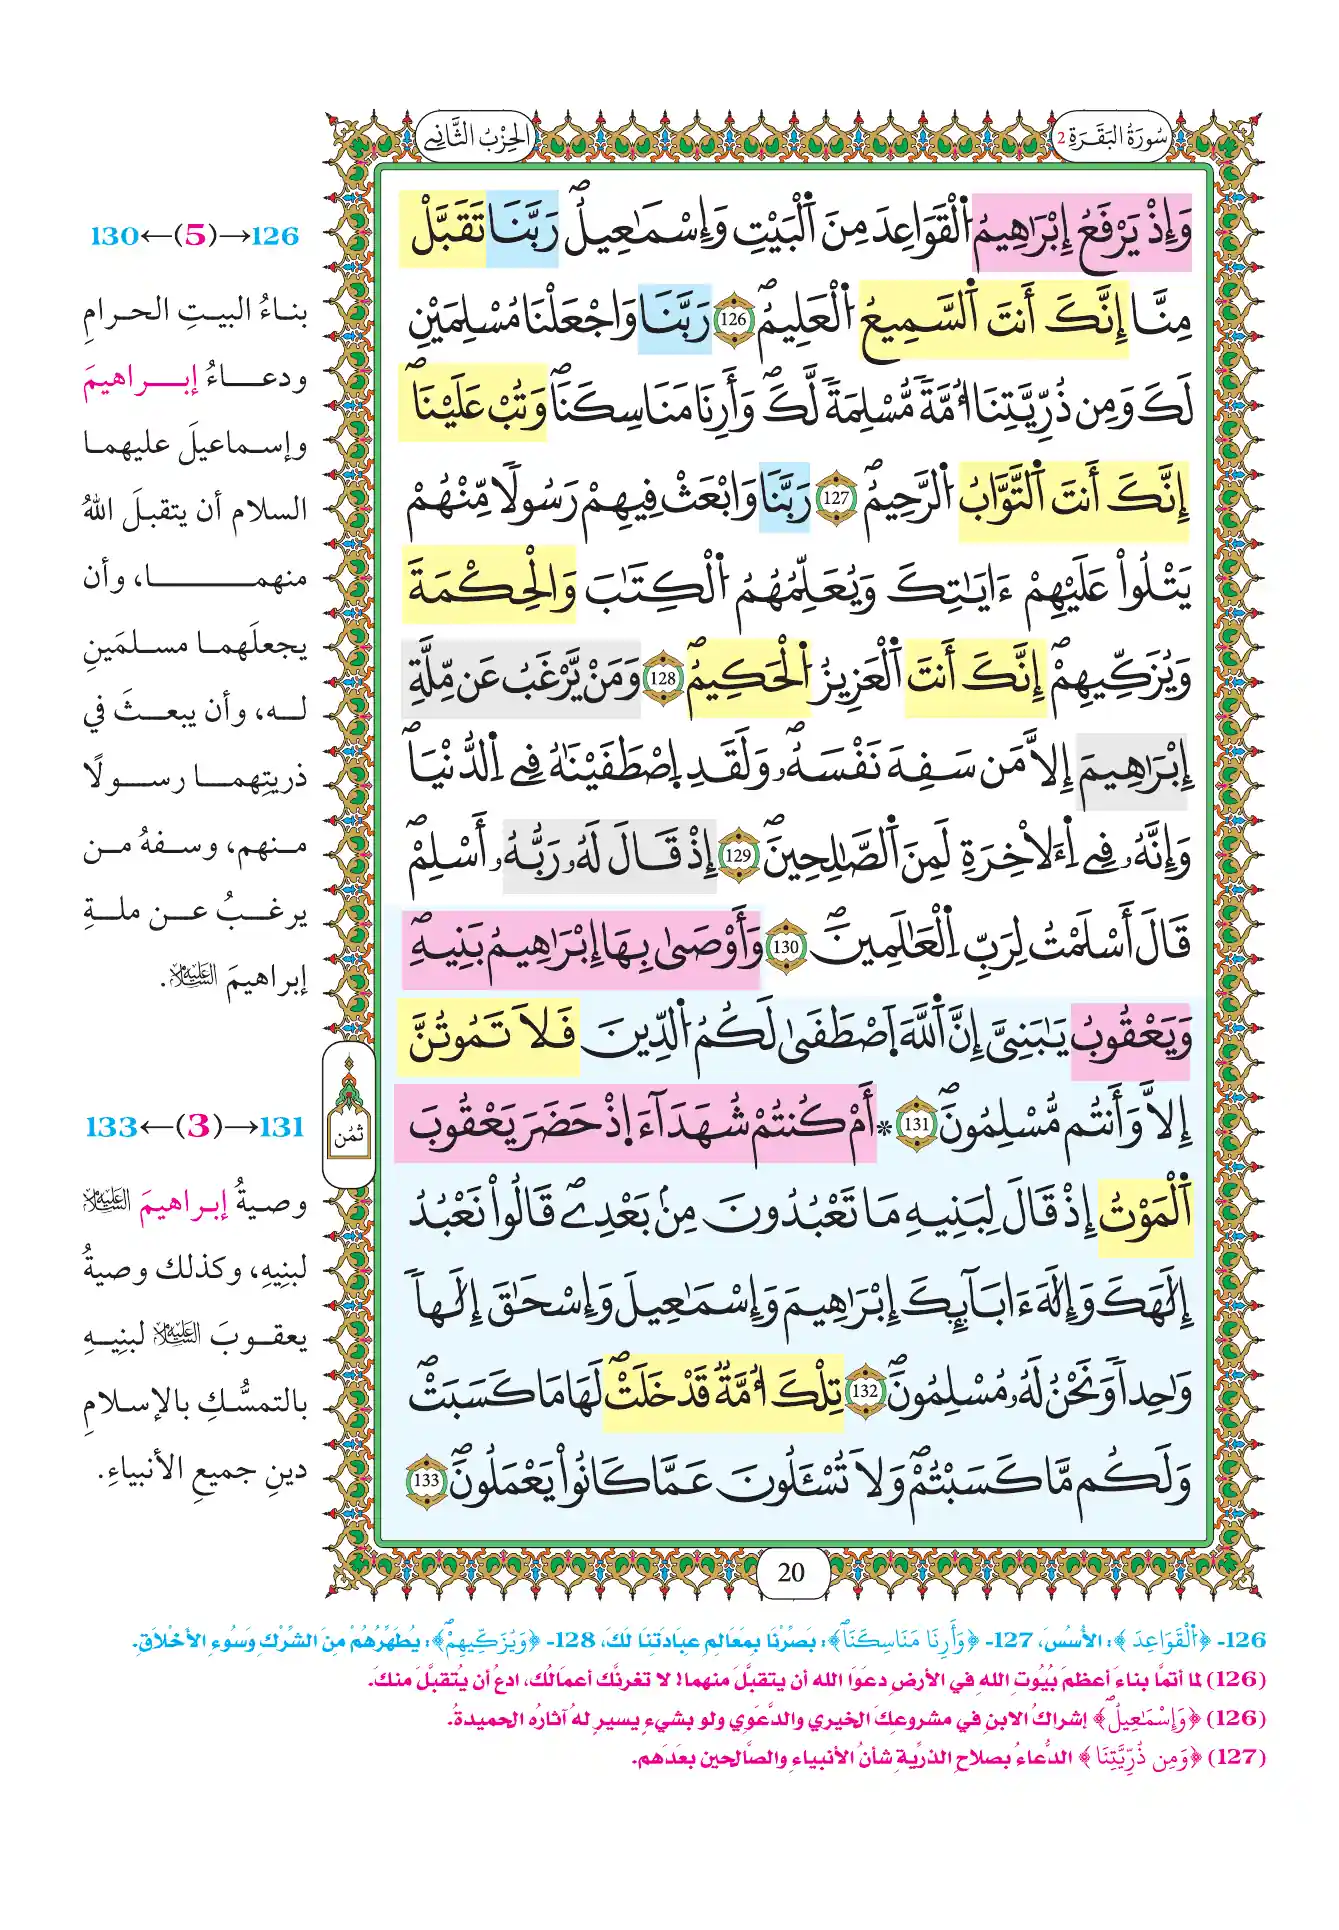 سُورَةُ البَقَرَةِ 2
الحِزْبُ الثَّانِي
وَإِذْ يَرْفَعُ إِبْرَاهِيمُ اُ۬لْقَوَاعِدَ مِنَ اَ۬لْبَيْتِ وَإِسْمَاعِيلُۖ رَبَّنَا تَقَبَّلْ
مِنَّا إِنَّكَ أَنتَ اَ۬لسَّمِيعُ اُ۬لْعَلِيمُۖ 126 رَبَّنَا وَاجْعَلْنَا مُسْلِمَيْنِ
لَكَ وَمِن ذُرِّيَّتِنَا أُمَّةٗ مُّسْلِمَةٗ لَّكَۖ وَأَرِنَا مَنَاسِكَنَاۖ وَتُبْ عَلَيْنَاۖ
إِنَّكَ أَنتَ اَ۬لتَّوَّابُ اُ۬لرَّحِيمُۖ 127 رَبَّنَا وَابْعَثْ فِيهِمْ رَسُولٗا مِّنْهُمْ
يَتْلُواْ عَلَيْهِمْ ءَايَٰتِكَ وَيُعَلِّمُهُمُ اُ۬لْكِتَٰبَ وَالْحِكْمَةَ
وَيُزَكِّيهِمْۖ إِنَّكَ أَنتَ اَ۬لْعَزِيزُ اُ۬لْحَكِيمُۖ 128 وَمَنْ يَّرْغَبُ عَن مِّلَّةِ
إِبْرَاهِيمَ إِلَّا مَن سَفِهَ نَفْسَهُۥۖ وَلَقَدِ اِ۪صْطَفَيْنَٰهُ فِے اِ۬لدُّنْيَاۖ
وَإِنَّهُۥ فِے اِ۬لَاخِرَةِ لَمِنَ اَ۬لصَّٰلِحِينَۖ 129 إِذْ قَالَ لَهُۥ رَبُّهُۥ أَسْلِمْۖ
قَالَ أَسْلَمْتُ لِرَبِّ اِ۬لْعَٰلَمِينَۖ 130 وَأَوْصَىٰ بِهَا إِبْرَاهِيمُ بَنِيهِۖ
وَيَعْقُوبُ يَٰبَنِيَّ إِنَّ اَ۬للَّهَ اَ۪صْطَفَىٰ لَكُمُ اُ۬لدِّينَ فَلَا تَمُوتُنَّ
إِلَّا وَأَنتُم مُّسْلِمُونَۖ 131 ۞ أَمْ كُنتُمْ شُهَدَآءَ اِ۪ذْ حَضَرَ يَعْقُوبَ
اَ۬لْمَوْتُ إِذْ قَالَ لِبَنِيهِ مَا تَعْبُدُونَ مِنۢ بَعْدِےۖ قَالُواْ نَعْبُدُ
إِلَٰهَكَ وَإِلَٰهَ ءَابَآئِكَ إِبْرَاهِيمَ وَإِسْمَٰعِيلَ وَإِسْحَٰقَ إِلَٰهاٗ
وَٰحِداٗ وَنَحْنُ لَهُۥ مُسْلِمُونَۖ 132 تِلْكَ أُمَّةٞ قَدْ خَلَتْۖ لَهَا مَا كَسَبَتْۖ
وَلَكُم مَّا كَسَبْتُمْۖ وَلَا تُسْـَٔلُونَ عَمَّا كَانُواْ يَعْمَلُونَۖ 133
126→(5)←130
بناءُ البيتِ الحرامِ
ودعاءُ إبراهيمَ
وإسماعيلَ عليهما
السلام أن يتقبلَ اللهُ
منهما، وأن
يجعلَهما مسلمَينِ
له، وأن يبعثَ في
ذريتِهما رسولًا
منهم، وسفهُ من
يرغبُ عن ملةِ
إبراهيمَ عليه السلام.
131→(3)←133
وصيةُ إبراهيمَ عليه السلام
لبنِيهِ، وكذلك وصيةُ
يعقوبَ عليه السلام لبنِيهِ
بالتمسُّكِ بالإسلامِ
دينِ جميعِ الأنبياءِ.
ثمُن
20
126- ﴿اُ۬لْقَوَاعِدَ﴾: الأُسُسَ، 127- ﴿وَأَرِنَا مَنَاسِكَنَاۖ﴾: بَصِّرْنَا بِمَعَالِمِ عِبَادَتِنَا لَكَ، 128- ﴿وَيُزَكِّيهِمْۖ﴾: يُطَهِّرُهُمْ مِنَ الشِّرْكِ وَسُوءِ الأَخْلَاقِ.
(126) لما أتمَّا بناءَ أعظمَ بُيُوتِ اللهِ في الأرضِ دعَوَا الله أن يتقبَّلَ منهما! لا تغرنَّك أعمالُك، ادعُ أن يُتقبَّلَ منكَ.
(126) ﴿وَإِسْمَٰعِيلُۖ﴾ إشراكُ الابنِ في مشروعِكَ الخيري والدَّعَوِي ولو بشيءٍ يسيرٍ لهُ آثارُه الحميدةُ.
(127) ﴿وَمِن ذُرِّيَّتِنَا﴾ الدُّعاءُ بصلاحِ الذريَّةِ شأنُ الأنبياءِ والصَّالحين بعدَهم.